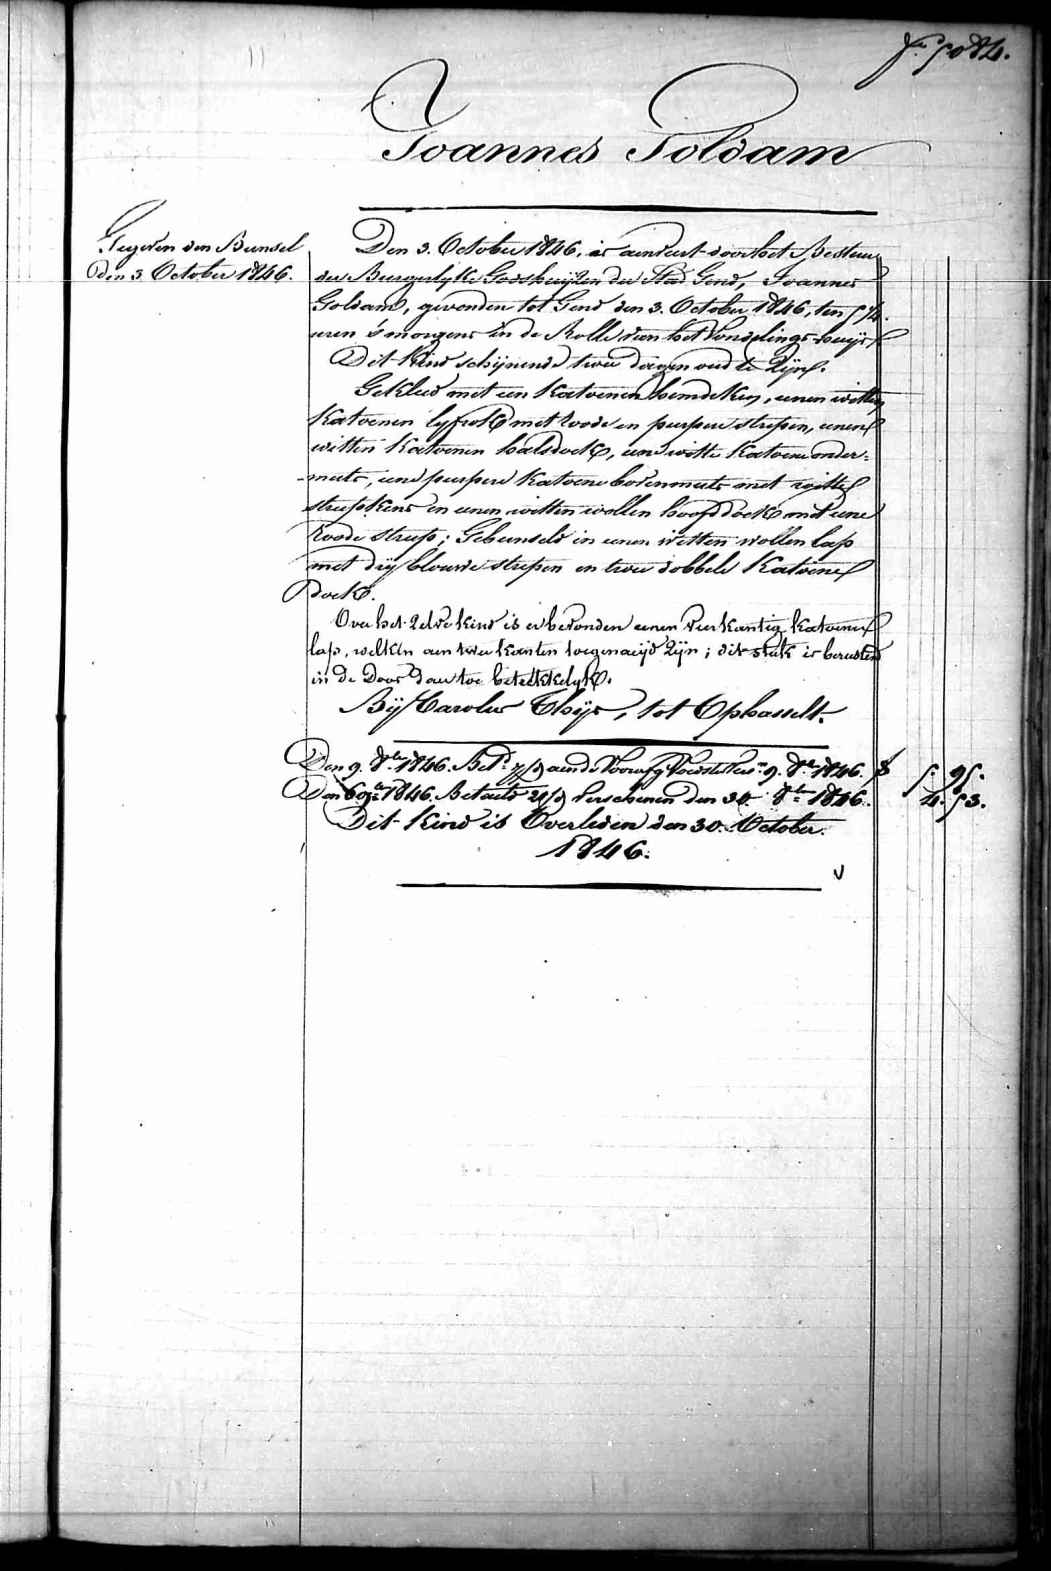 f.° 5084.
Joannes Goldam
Gegeven den Bunsel
den 3. October 1846.
Den 3. October 1846, is aenveert door het Bestuur
der Burgerlyke Godshuijzen der Stad Gend, Joannes
Goldam, gevonden tot Gend den 3. October 1846, ten 5 1/4.
uren 's morgens in de Rolle van het Vondelings-huijs.
Dit kind schijnende twee dagen oud te zijn.
Gekleed met een katoenen hemdeken, eenen witten
katoenen lyfrok met roode en purpere strepen, eenen
witten katoenen halsdoek, eene witte katoene onder-
muts, eene purpere katoene bovenmuts met witte
streepkens en eenen witten wollen hoofddoek met eene
roode streep; Gebunseld in eenen witten wollen lap
met dry blouwe strepen en twee dobbele katoene
doek.
Over het zelve kind is er bevonden eenen vierkantig katoenen
lap, welken aen twee kanten toegenaeijd zijn; dit stuk is berustend
in de Doos daertoe betrekkelyk.
Bij Carolus Thijs, tot Ophasselt.
Den 9. 8.bre 1846. Bet.d aen de 9. 8.bre 1846. 5. 95.
Den 1846. Betaeld verschenen den 30. 8.bre 1846. 4. 53.
Dit kind is Overleden den 30. October
1846.